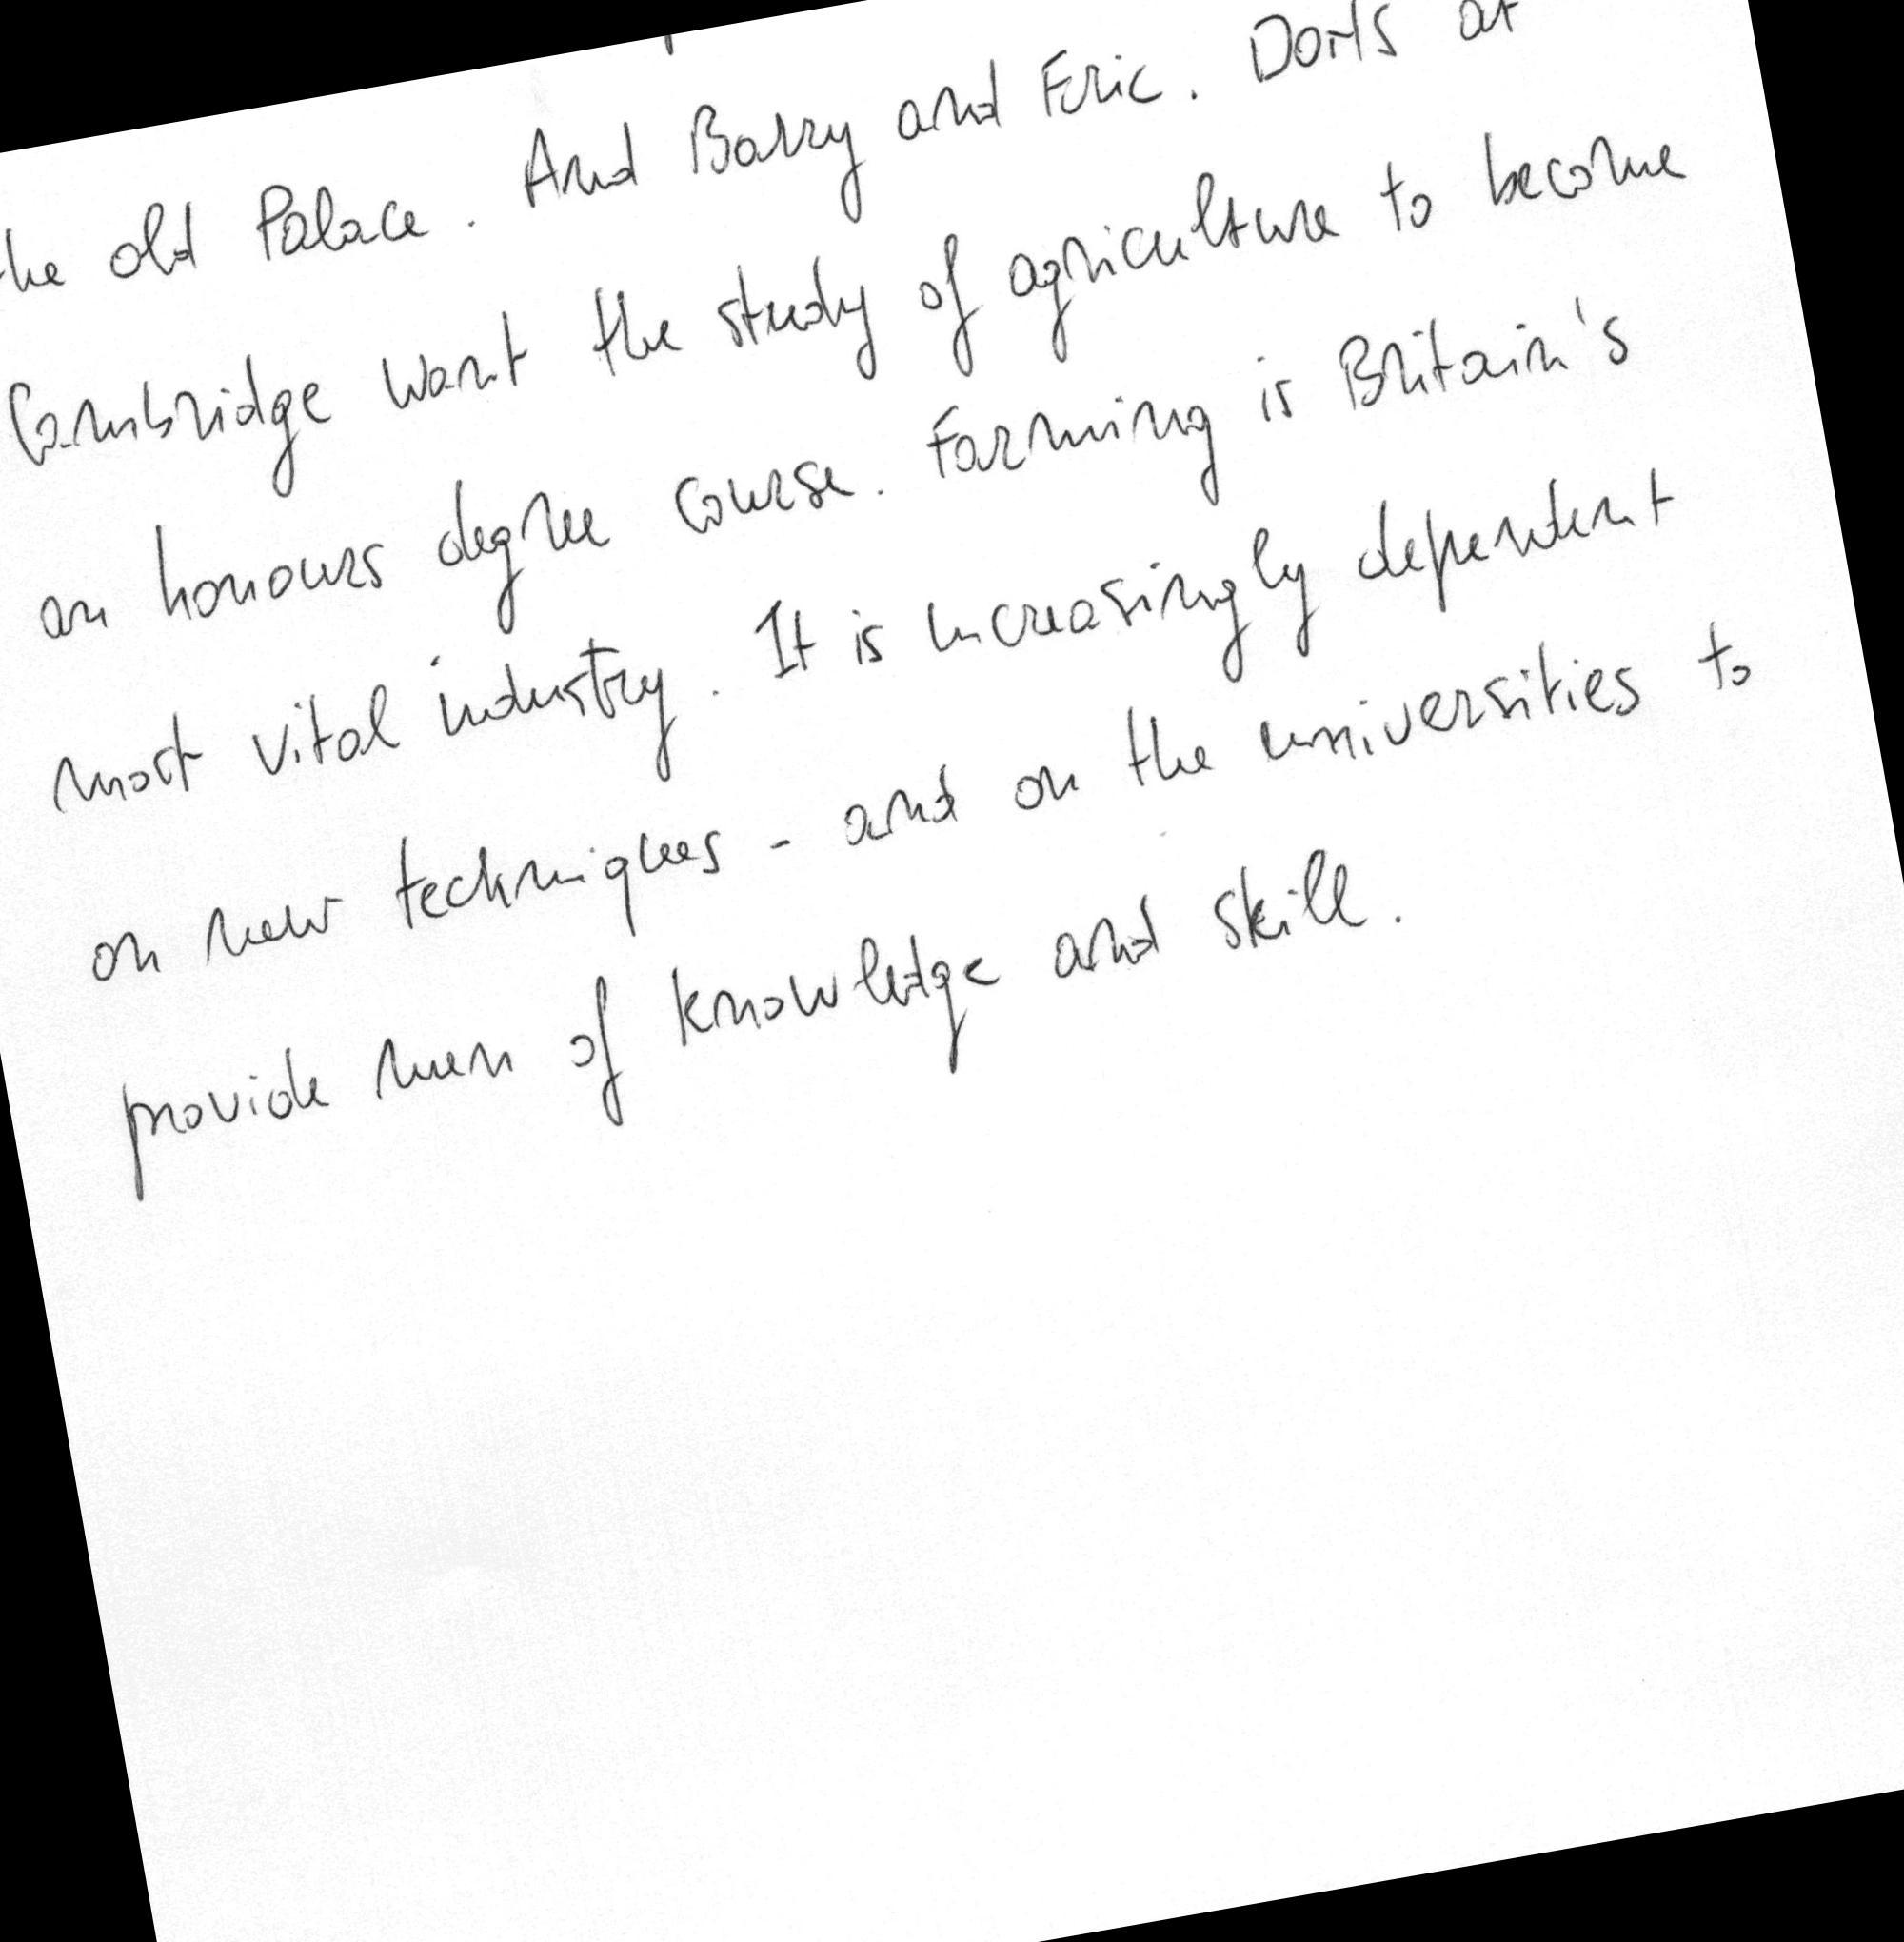 the old Palace. And Barry and Eric. Dons at
Cambridge want the study of agriculture to become
an honours degree course. Farming is Britain's
most vital industry. It is increasingly dependent
on new techniques - and on the universities to
provide men of knowledge and skill.